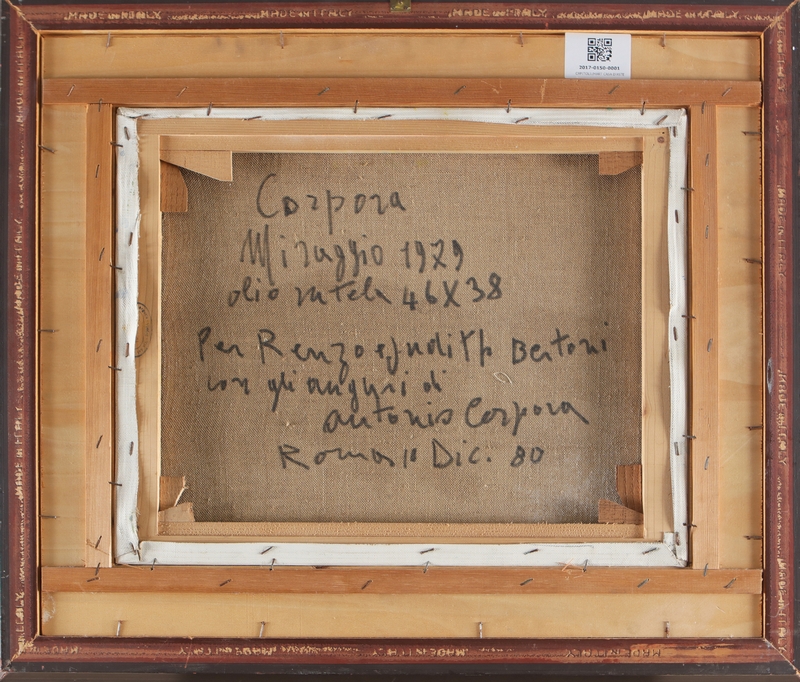 MADE IN ITALY MADE IN ITALY MADE IN ITALY MADE IN ITALY
2017-0150-0001
Corpora
Miraggio 1979
olio su tela 46X38
Per Renzo e Judith Bertoni
con gli auguri di
Antonio Corpora
Roma 10 Dic. 80